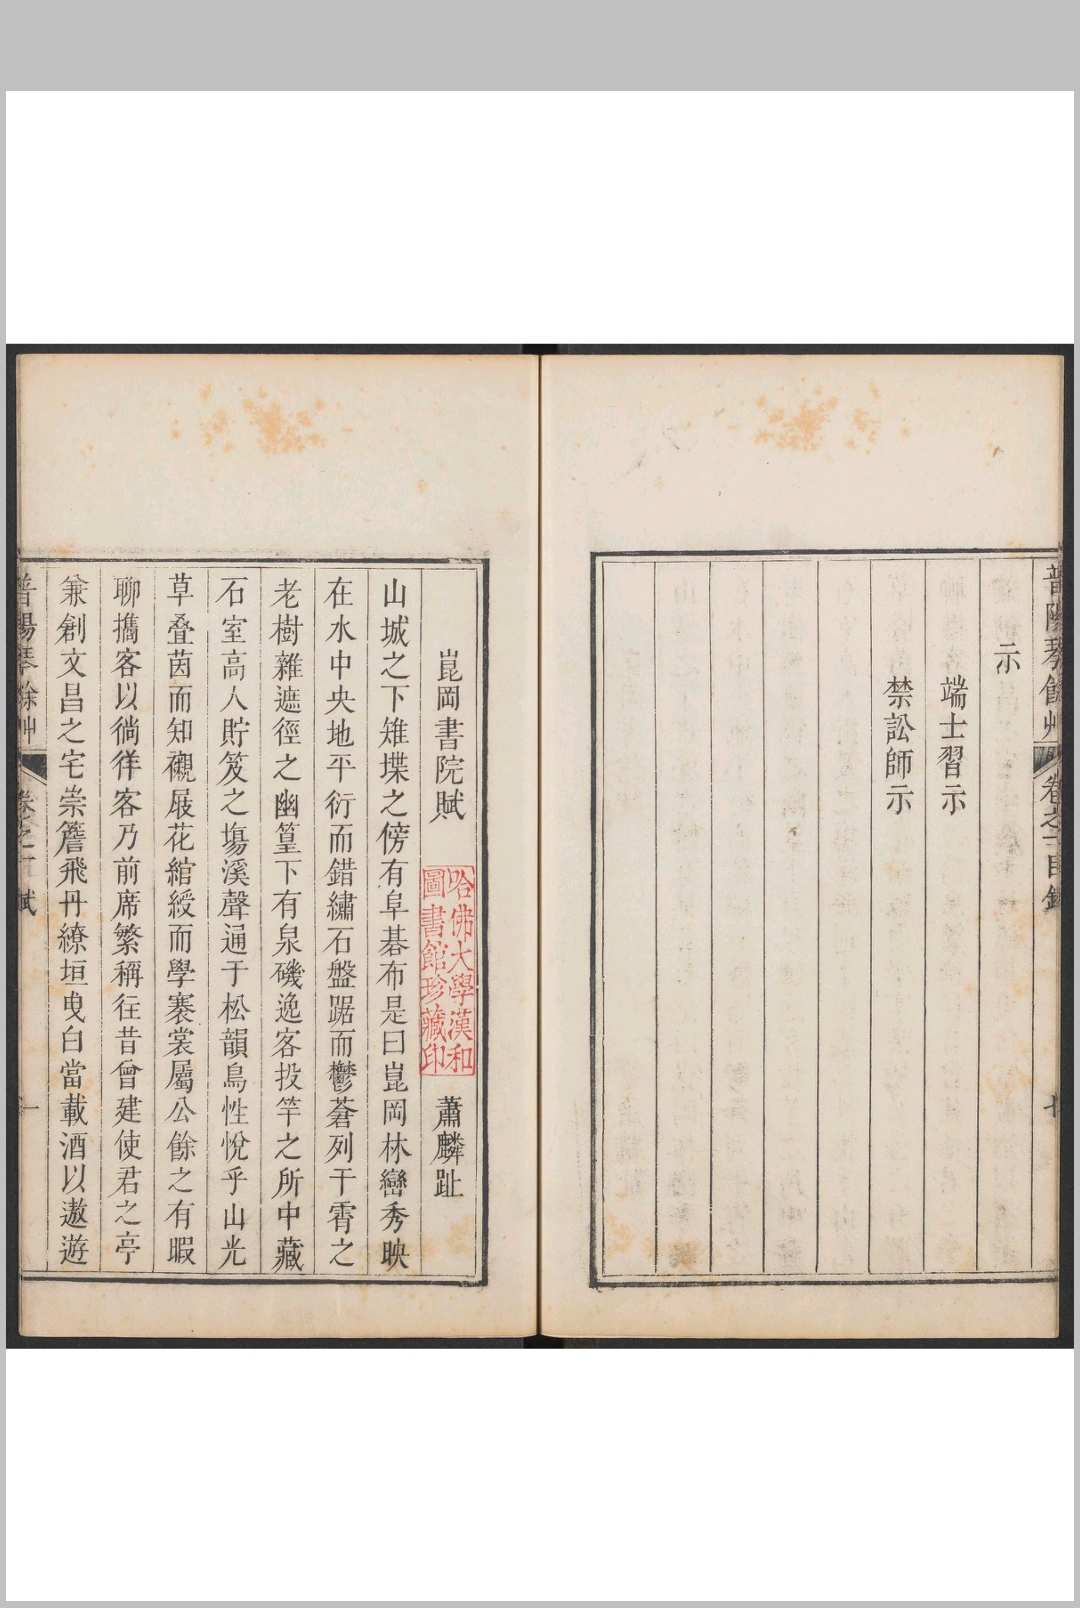 普陽琴餘艸 卷之二目錄
示
端士習示
禁訟師示
崑岡書院賦 蕭麟趾
哈佛大學漢和
圖書館珍藏印
山城之下雉堞之傍有阜碁布是曰崑岡林巒秀映
在水中央地平衍而錯繡石盤踞而鬱蒼列干霄之
老樹雜遮徑之幽篁下有泉磯逸客投竿之所中藏
石室高人貯笈之塲溪聲通于松韻鳥性悅乎山光
草叠茵而知襯屐花綰綬而學褰裳屬公餘之有暇
聊攜客以徜徉客乃前席繁稱徃昔曾建使君之亭
兼創文昌之宅崇簷飛丹繚垣曳白當載酒以遨遊
普陽琴餘艸 卷之二 賦 一